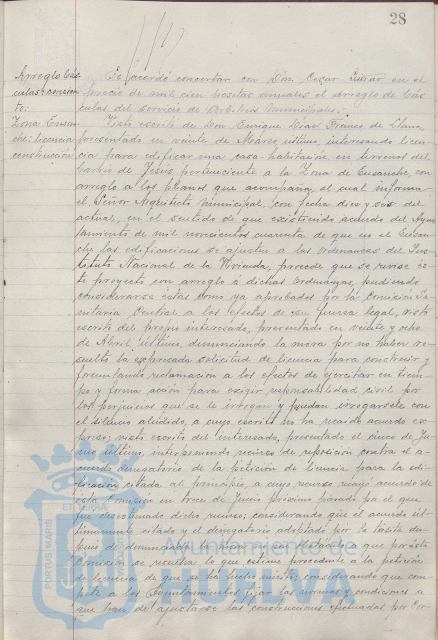 28
Arreglo bás-
culas: concier-
to.
Se acordó concertar con Don Cesar en el
precio de mil cien pesetas anuales el arreglo de bás-
culas del servicio de Arbitrios Municipales.
Zona Ensan-
che: licencia
construcción.
Visto escrito de Don Enrique Diaz Franco de Llanos,
presentado en veinte de Marzo último, interesando licen-
cia para edificar una casa-habitación en terrenos del
barrio de Jesús perteneciente a la Zona de Ensanche, con
arreglo a los planos que acompaña, el cual informa
el Señor Arquitecto Municipal, con fecha diez y seis del
actual, en el sentido de que existiendo acuerdo del Ayun-
tamiento de mil novecientos cuarenta de que en el Ensan-
che las edificaciones se ajusten a las Ordenanzas del Ins-
tituto Nacional de la Vivienda, procede que se revise es-
te proyecto con arreglo a dichas Ordenanzas, pudiendo
considerarse éstas como ya aprobadas por la Comisión Sa-
nitaria Central a los efectos de su fuerza legal, visto
escrito del propio interesado, presentado en veinte y ocho
de Abril último, denunciando la mora por no haber re-
suelto la expresada solicitud de licencia para construir y
formulando reclamación a los efectos de ejercitar en tiem-
po y forma acción para exigir responsabilidad civil por
los perjuicios que se le irrogan y puedan irrogársele con
el silencio aludido, a cuyo escrito no ha recaido acuerdo ex-
preso; visto escrito del interesado, presentado el cinco de Ju-
nio último, interponiendo recurso de reposición contra el a-
cuerdo denegatorio de la petición de licencia para la edi-
ficación citada al principio, a cuyo recurso recayó acuerdo de
esta Comisión en trece de Junio próximo pasado por el que
fue desestimado dicho recurso; considerando que el acuerdo úl-
timamente citado y el denegatorio adoptado por la tácita des-
pués de denunciada la mora que por ésta
Comisión se resuelva lo que estime procedente a la petición
de licencia de que se ha hecho mérito; considerando que com-
pete a los Ayuntamientos fijar las normas y condiciones a
que han de ajustarse las construcciones efectuadas por
PORTUS MARIS ET TERRAE
Ayuntamiento de
HUELVA